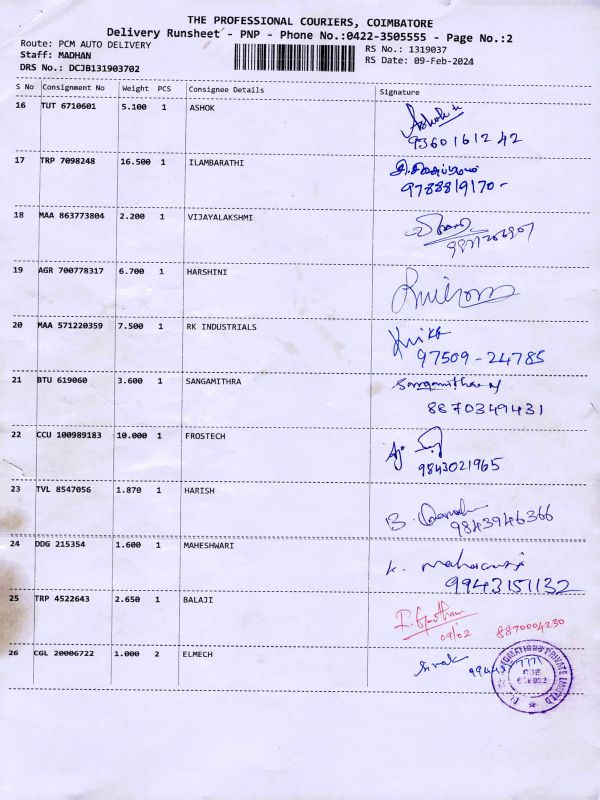 THE PROFESSIONAL COURIERS, COIMBATORE
Delivery Runsheet - PNP - Phone No.:0422-3505555 - Page No.:2
Route: PCM AUTO DELIVERY RS No.: 1319037
Staff: MADHAN RS Date: 09-Feb-2024
DRS No.: DCJB131903702
S No Consignment No Weight PCS Consignee Details Signature
16 TUT 6710601 5.100 1 ASHOK Ashok
9360161242
17 TRP 7098248 16.500 1 ILAMBARATHI
9788819170
18 MAA 863773804 2.200 1 VIJAYALAKSHMI
19 AGR 700778317 6.700 1 HARSHINI
20 MAA 571220359 7.500 1 RK INDUSTRIALS
97509-24785
21 BTU 619060 3.600 1 SANGAMITHRA Sangamithra
8870349431
22 CCU 100989183 10.000 1 FROSTECH
9843021965
23 TVL 8547056 1.870 1 HARISH B.
9843946366
24 DDG 215354 1.600 1 MAHESHWARI K.
9943151132
25 TRP 4522643 2.650 1 BALAJI
09/02 8870004230
26 CGL 20006722 1.000 2 ELMECH
PRIVATE LIMITED